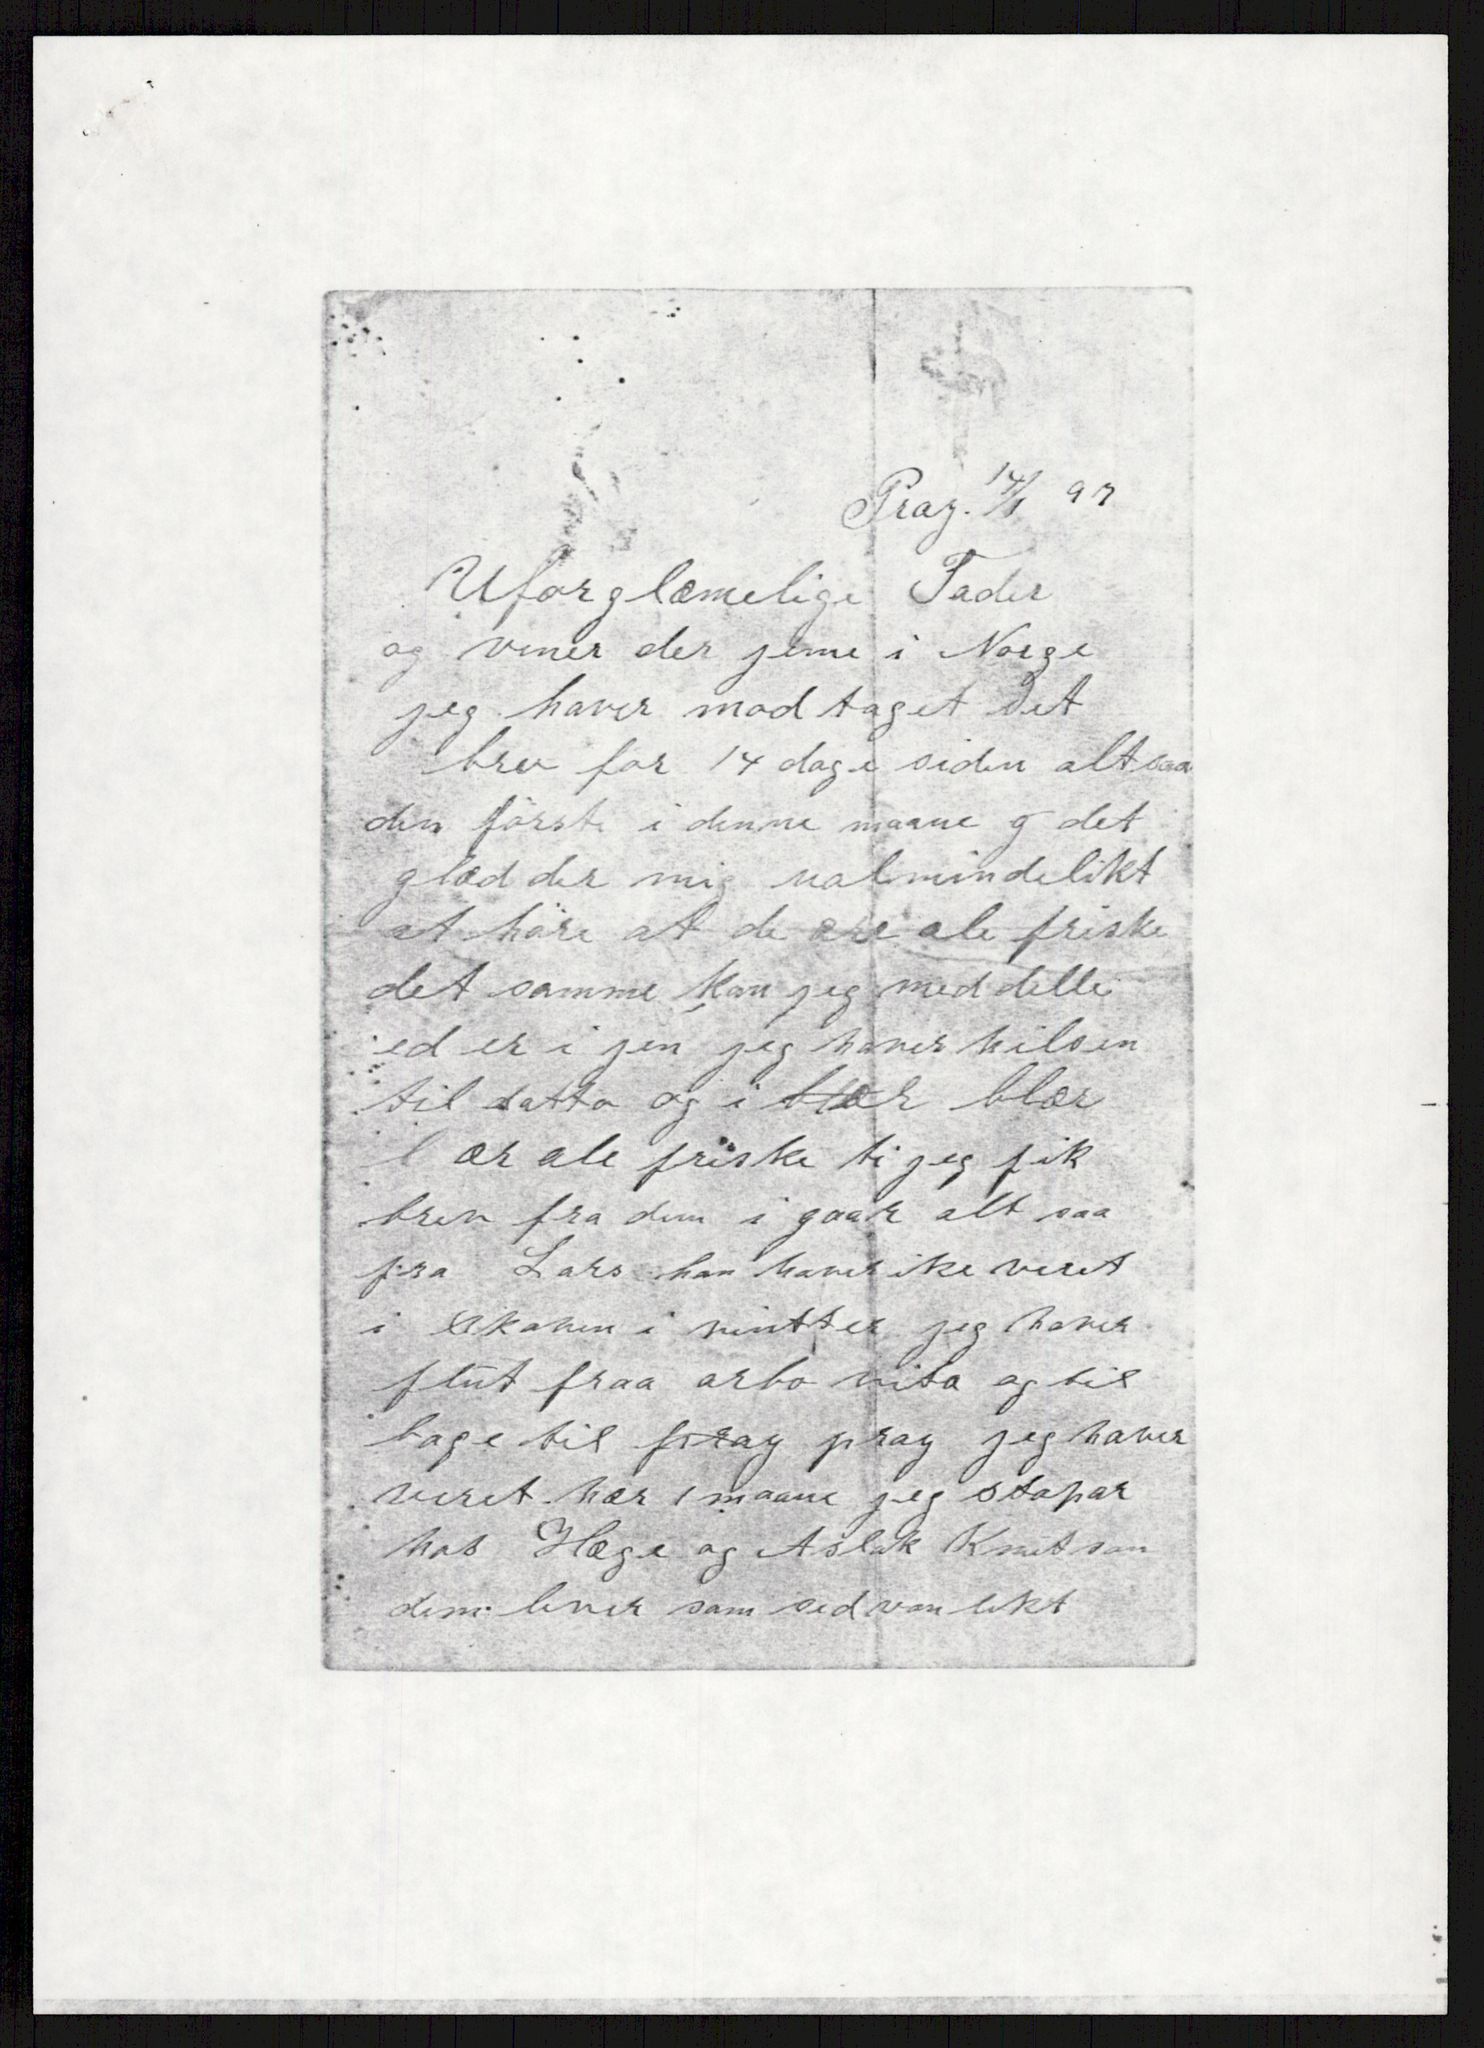 Pray. 14/1 97
Uforglemelige Fader
og vener der jeme i Norge
jeg haver mod taget Det
brev for 14 dage siden alt saa
den förste i denne maane g det
glæd der mig ualmindelikt
at höre at de ære ale friske
det samme kan jeg med delle
ed er i jen jeg haver hilsen
til datto og i blær blær
ær ale friske ti jeg fik
brev fra dem i gaar alt saa
fra Lars han haver ike veret
i Skaven i vintter jeg haver
flut fraa arbo vita og til
bage til pray pray jeg haver
veret hær 1 maane jeg stopar
hos Hæge og Aslak Knutson
dem lever som sedvanlikt